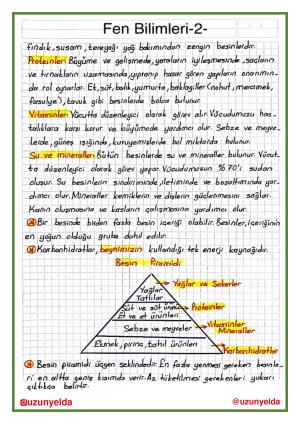 Fen Bilimleri-2-
fındık, susam, tereyağı yağ bakımından zengin besinlerdir.
Proteinler: Büyüme ve gelişmede, yaraların iyileşmesinde, saçların
ve tırnakların uzamasında, yıpranıp hasar gören yapıların onarımın-
da rol oynarlar. Et, süt, balık, yumurta, baklagiller (nohut, mercimek,
fasulye), tavuk gibi besinlerde bolca bulunur.
Vitaminler: Vücutta düzenleyici olarak görev alır. Vücudumuzu has-
talıklara karşı korur ve büyümede yardımcı olur. Sebze ve meyve-
lerde, güneş ışığında, kuruyemişlerde bol miktarda bulunur.
Su ve mineraller: Bütün besinlerde su ve mineraller bulunur. Vücut-
ta düzenleyici olarak görev yapar. Vücudumuzun %70'i sudan
oluşur. Su besinlerin sindiriminde, iletiminde ve boşaltımında yar-
dımcı olur. Mineraller kemiklerin ve dişlerin güçlenmesini sağlar.
Kanın oluşmasına ve kasların çalışmasına yardımcı olur.
Bir besinde birden fazla besin içeriği olabilir. Besinler, içeriğinin
en yoğun olduğu gruba dahil edilir.
Karbonhidratlar, beynimizin kullandığı tek enerji kaynağıdır.
Besin Piramidi
Yağlar
Tatlılar
Yağlar ve Şekerler
Süt ve süt ürünü
Et ve et ürünleri
Proteinler
Sebze ve meyveler
Vitaminler
Mineraller
Ekmek, pirinç, tahıl ürünleri
Karbonhidratlar
Besin piramidi üçgen şeklindedir. En fazla yenmesi gereken besinle-
ri en altta geniş kısımda verir. Az tüketilmesi gerekenleri yukarı
çıktıkça belirtir.
@uzunyelda
@uzunyelda